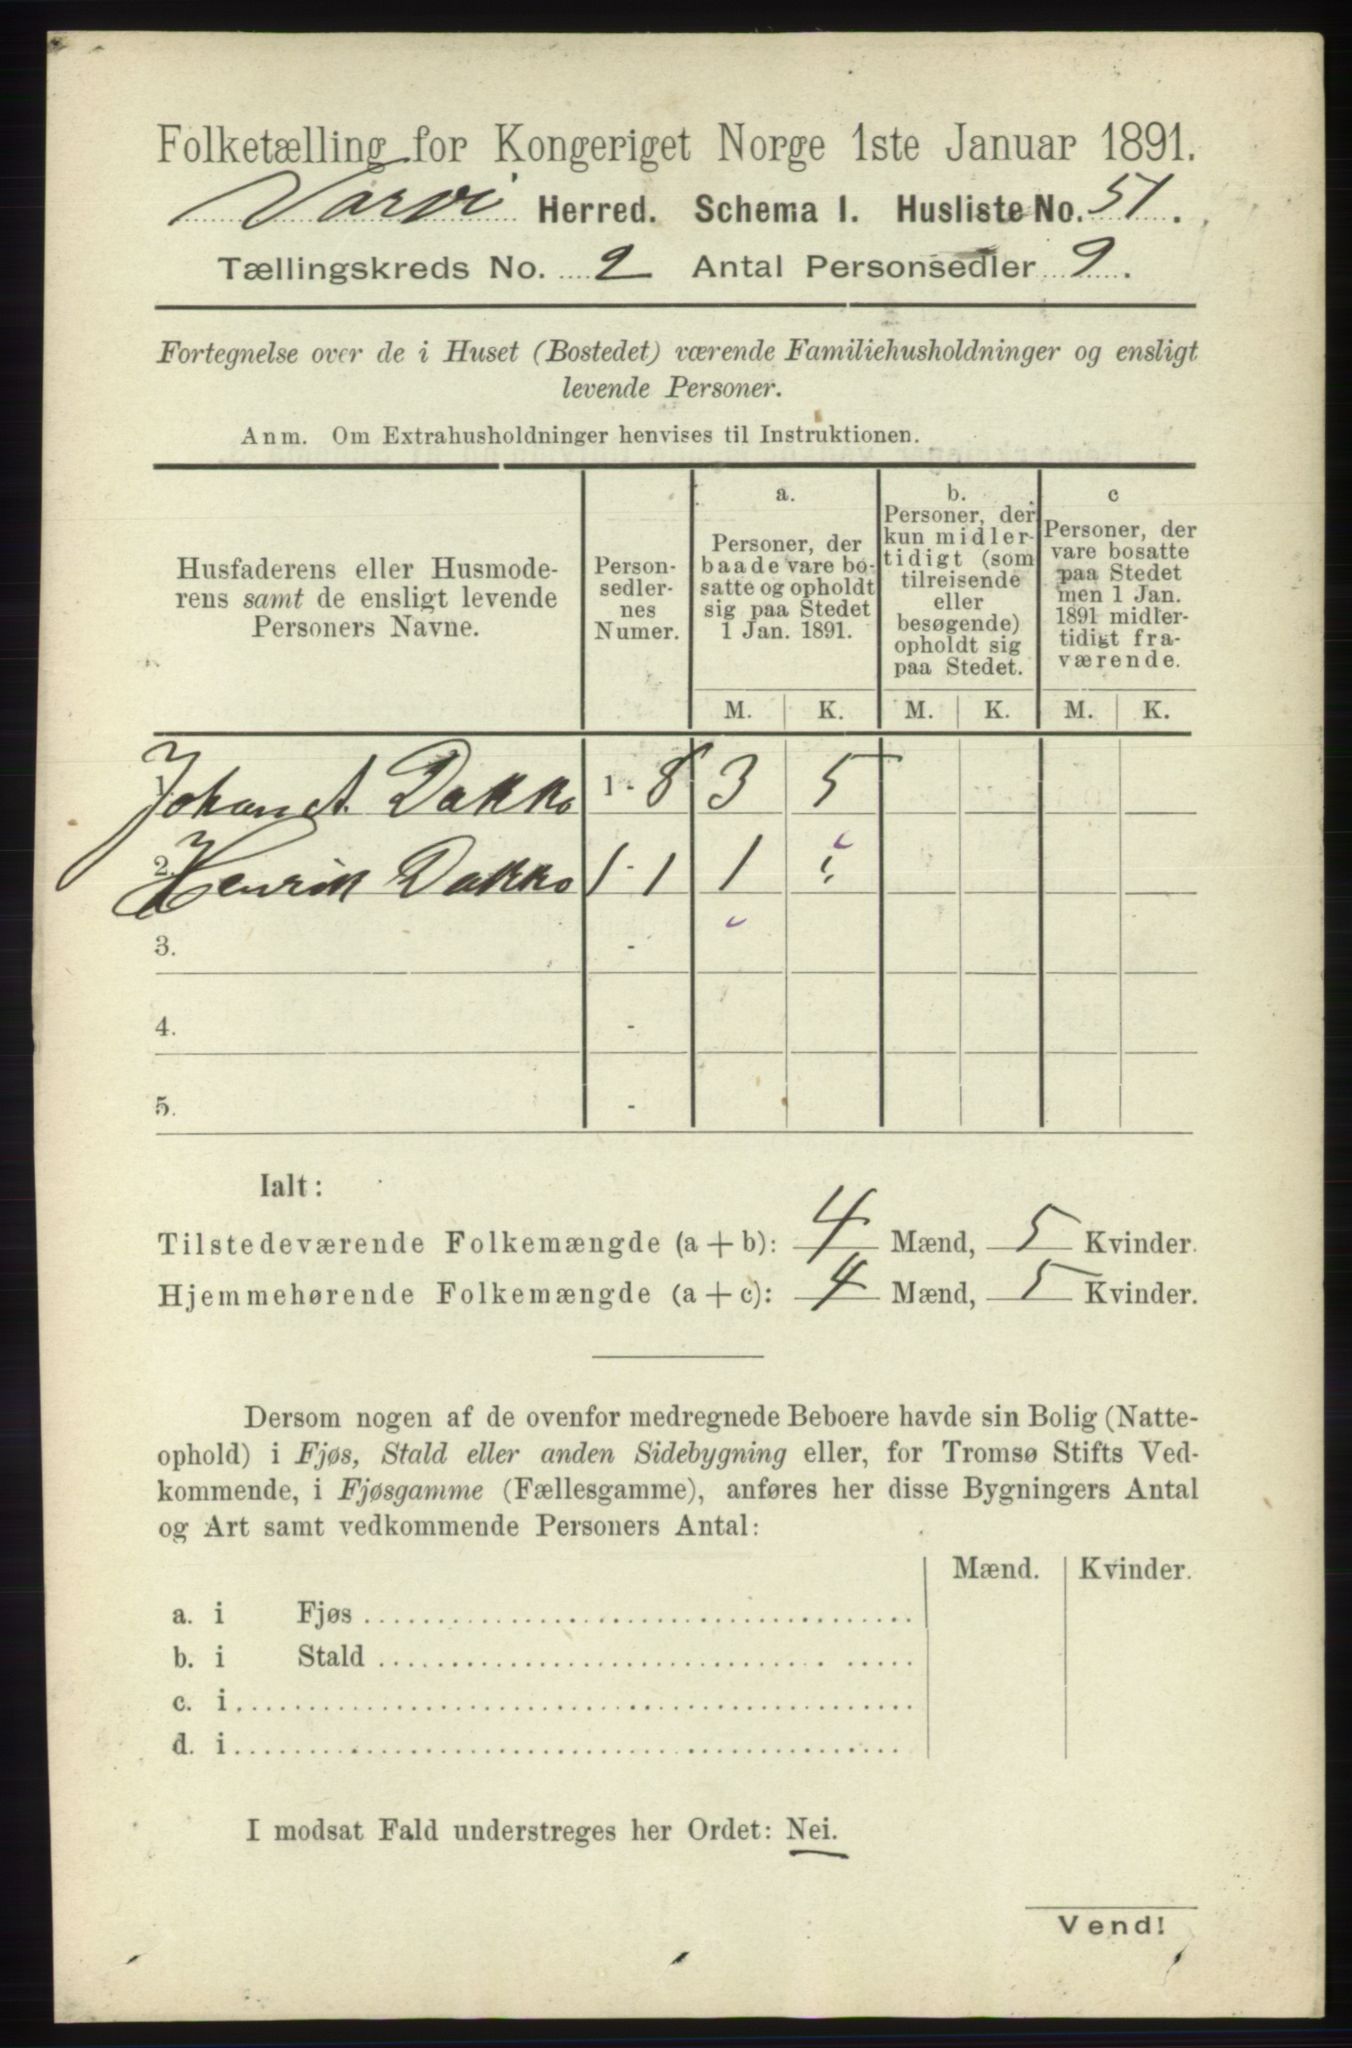 Folketælling for Kongeriget Norge 1ste Januar 1891.
Herred. Schema I. Husliste No. 51.
Tællingskreds No. 2 Antal Personsedler 9.
Fortegnelse over de i Huset (Bostedet) værende Familiehusholdninger og ensligt
levende Personer.
Anm. Om Extrahusholdninger henvises til Instruktionen.
Husfaderens eller Husmode-
rens samt de ensligt levende
Personers Navne.
Person-
sedler-
nes
Numer.
a.
Personer, der
baade vare bo-
satte og opholdt
sig paa Stedet
1 Jan. 1891.
b.
Personer, der
kun midler-
tidigt (som
tilreisende
eller
besøgende)
opholdt sig
paa Stedet.
c
Personer, der
vare bosatte
paa Stedet
men 1 Jan.
1891 midler-
tidigt fra-
værende.
M. K. M. K. M. K.
Dakko 1 - 8 3 5
2. Henrik Dakko 1 - 1 1
3. -
4. -
5. -
Ialt:
Tilstedeværende Folkemængde (a + b): 4 Mænd, 5 Kvinder.
Hjemmehørende Folkemængde (a + c): 4 Mænd, 5 Kvinder.
Dersom nogen af de ovenfor medregnede Beboere havde sin Bolig (Natte-
ophold) i Fjøs, Stald eller anden Sidebygning eller, for Tromsø Stifts Ved-
kommende, i Fjøsgamme (Fællesgamme), anføres her disse Bygningers Antal
og Art samt vedkommende Personers Antal:
Mænd. Kvinder.
a. i Fjøs
b. i Stald
c. i
d. i
I modsat Fald understreges her Ordet: Nei.
Vend!